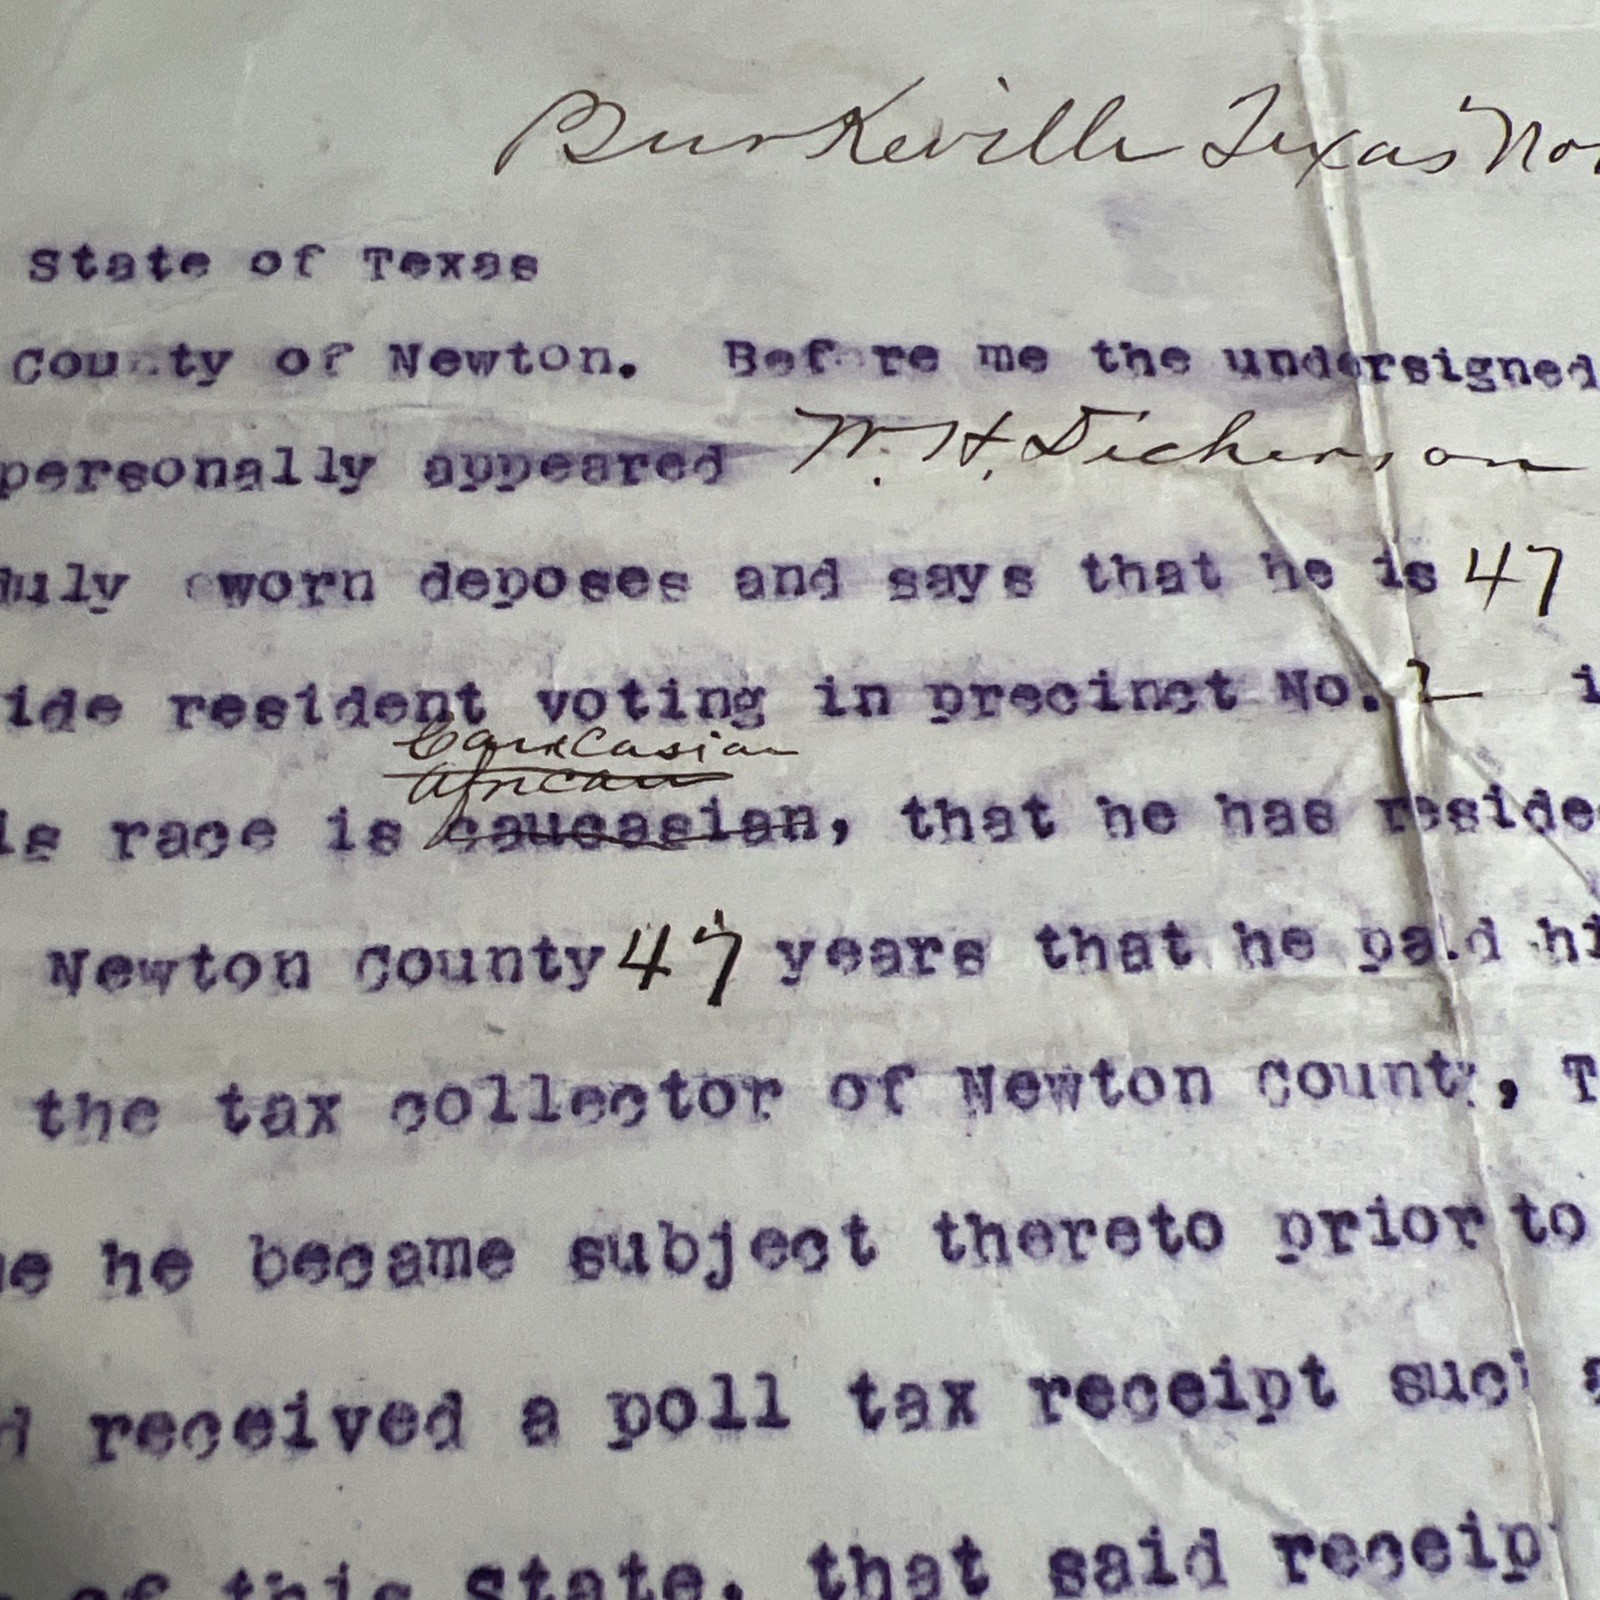 Burkeville Texas Nov
State of Texas
County of Newton. Before me the undersigned
personally appeared W. H. Dickerson
duly sworn deposes and says that he is 47
ide resident voting in precinct No. 2 i
Caucasian
African
is race is caucasian, that he has reside
Newton county 47 years that he paid hi
the tax collector of Newton county, T
ue he became subject thereto prior to
d received a poll tax receipt such a
of this state, that said receip